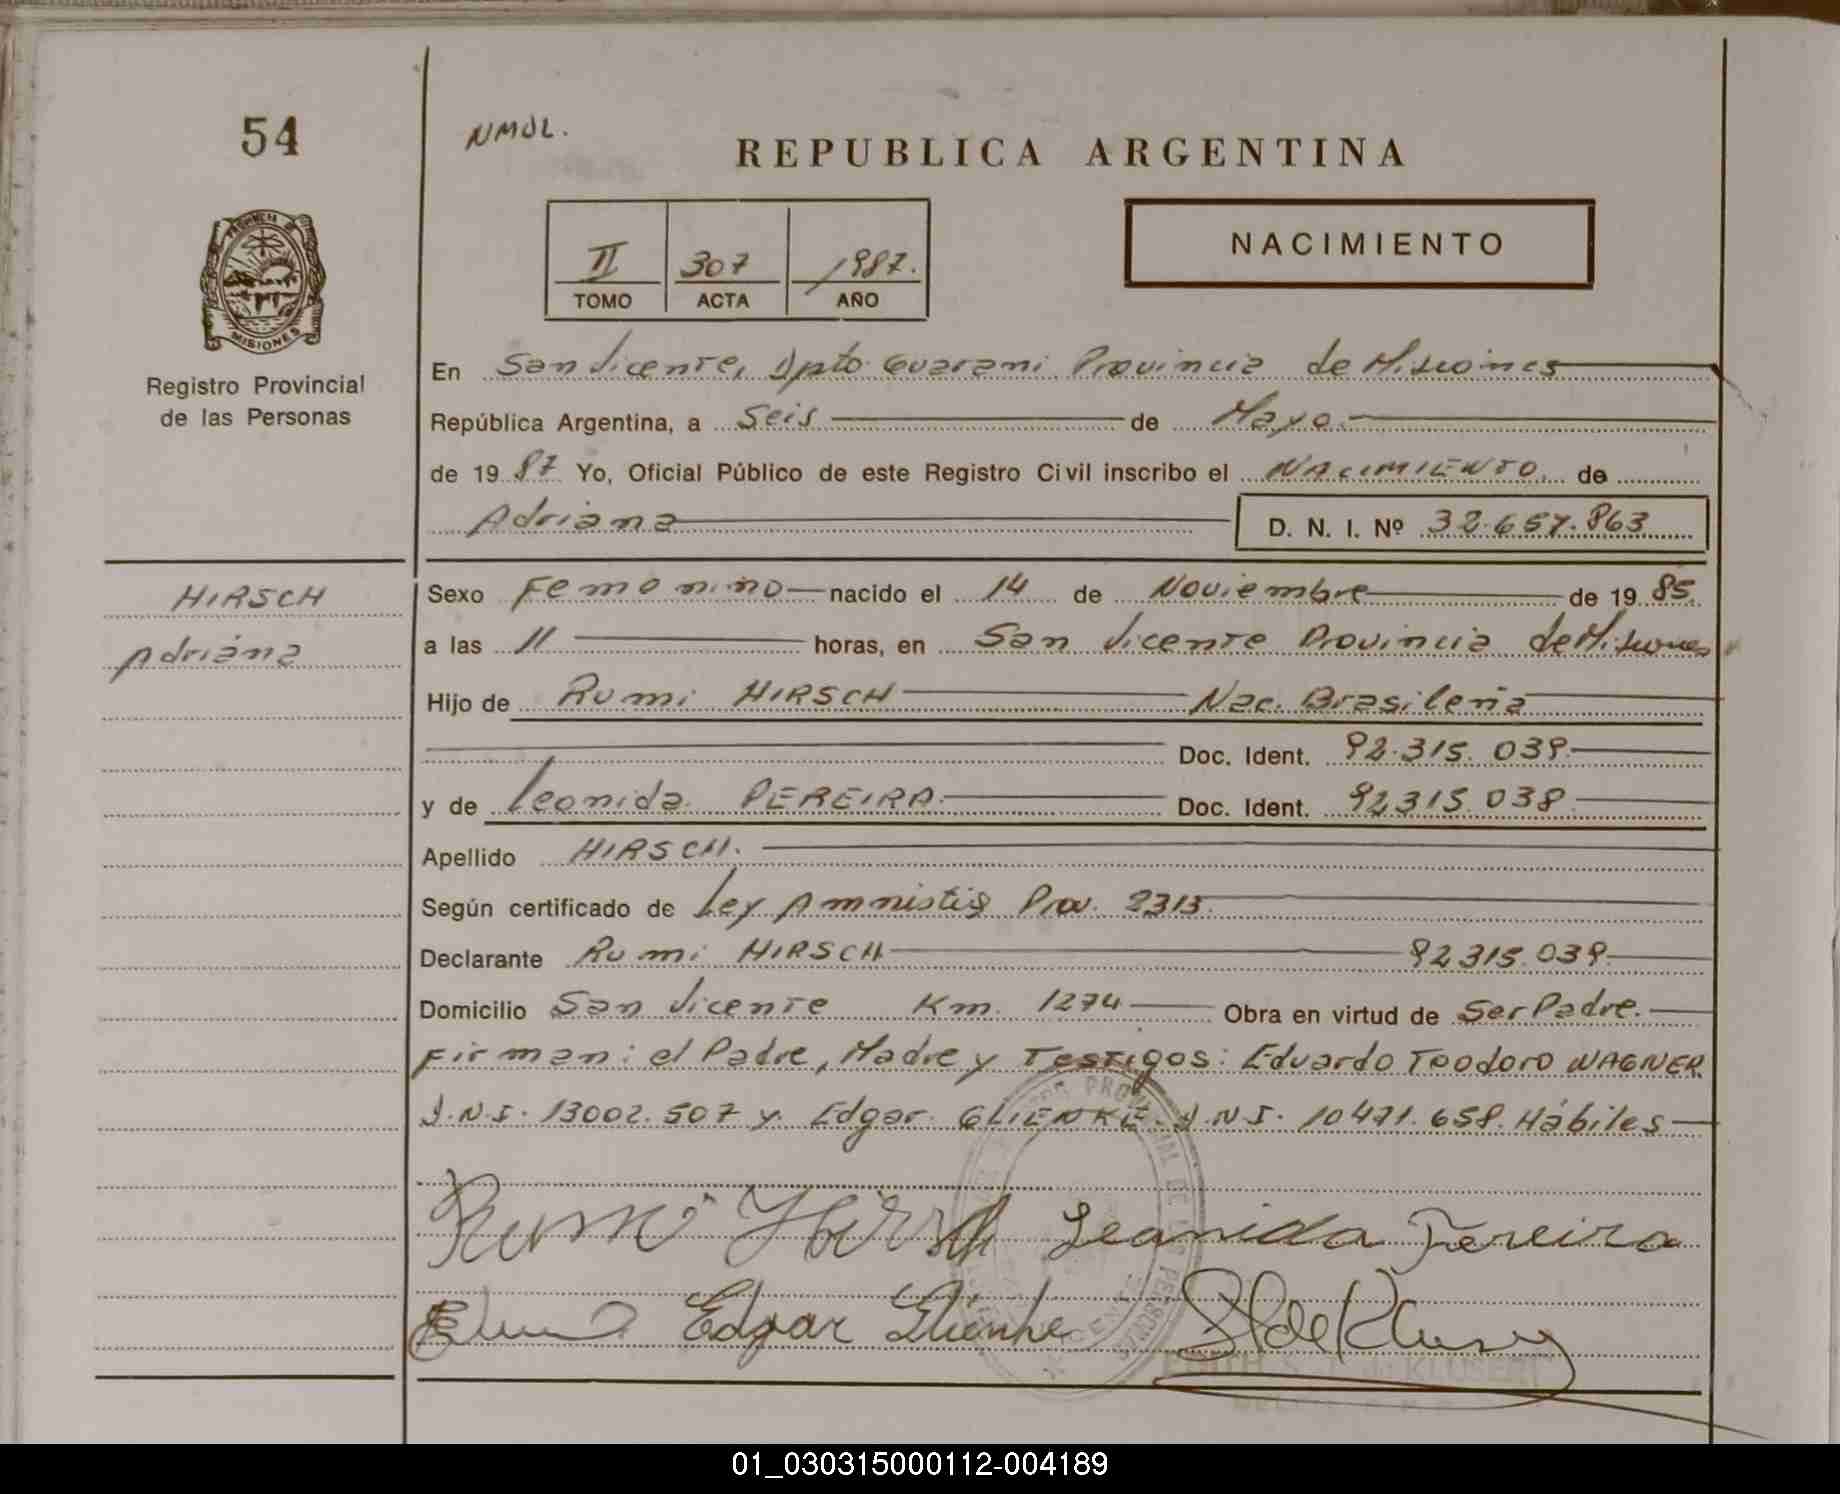 54
NMOL.
REPUBLICA ARGENTINA
PROVINCIA D
MISIONES
Registro Provincial
de las Personas
II 307 1987.
TOMO ACTA AÑO
NACIMIENTO
En San Vicente, Dpto. Guarani Provincia de Misiones
República Argentina, a Seis de Mayo
de 19 87 Yo, Oficial Público de este Registro Civil inscribo el NACIMIENTO. de
Adriana D. N. I. Nº 32.657.863
HIRSCH
Adriána
Sexo Femenino nacido el 14 de Noviembre de 19 85.
a las 11 horas, en San Vicente Provincia de Misiones
Hijo de Rumi HIRSCH Nac. Brasileña
Doc. Ident. 92.315.039
y de Leonida PEREIRA. Doc. Ident. 92315.038
Apellido HIRSCH.
Según certificado de Ley Amnistia Prov. 2315.
Declarante Rumi HIRSCH 92315.039
Domicilio San Vicente Km. 1274 Obra en virtud de Ser Padre.
Firman: el Padre, Madre y Testigos: Eduardo Teodoro WAGNER
D.N.I. 13002.507 y Edgar GLIENKE. D.N.I. 10471.658. Hábiles
Rumi Hirsch Leonida Pereira
Edgar Glienke S de Klusen
01_030315000112-004189